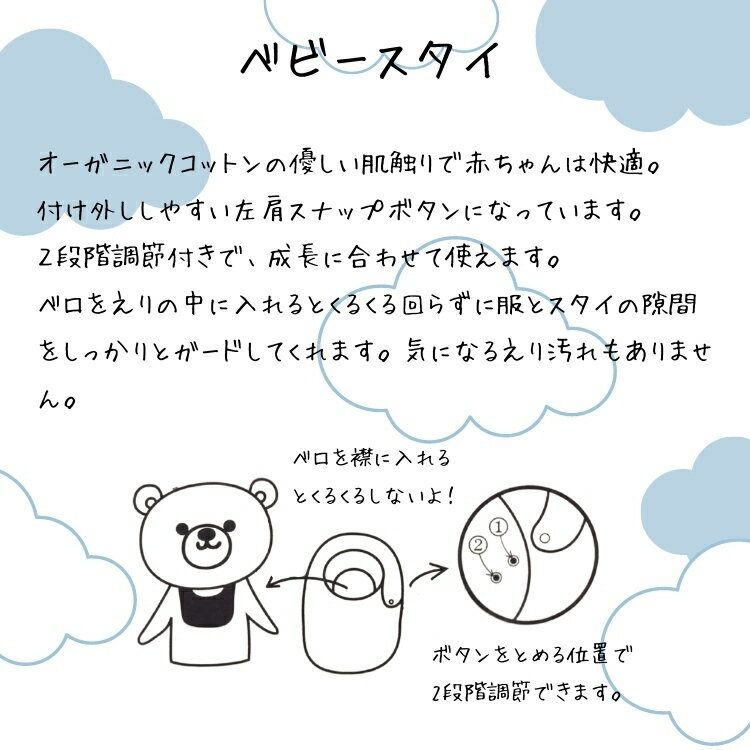 ベビースタイ
オーガニックコットンの優しい肌触りで赤ちゃんは快適。
付け外ししやすい左肩スナップボタンになっています。
2段階調節付きで、成長に合わせて使えます。
ベロをえりの中に入れるとくるくる回らずに服とスタイの隙間
をしっかりとガードしてくれます。気になるえり汚れもありませ
ん。
ベロを襟に入れる
とくるくるしないよ！
①
②
ボタンをとめる位置で
2段階調節できます。